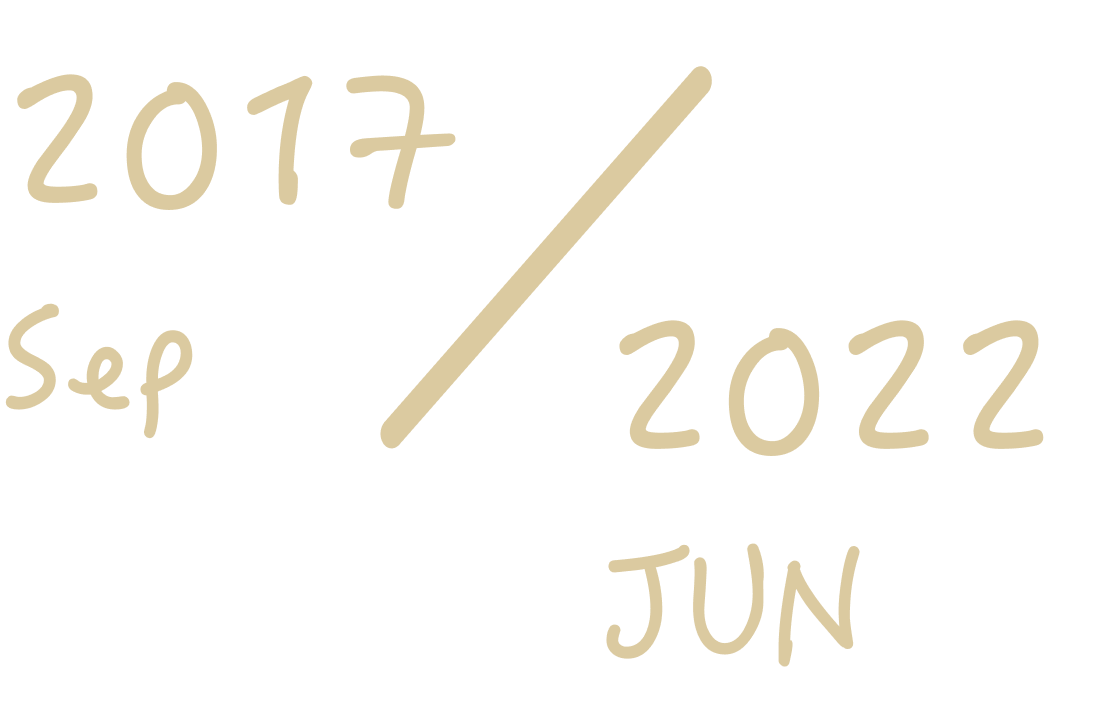 2017 /
Sep
2022
JUN